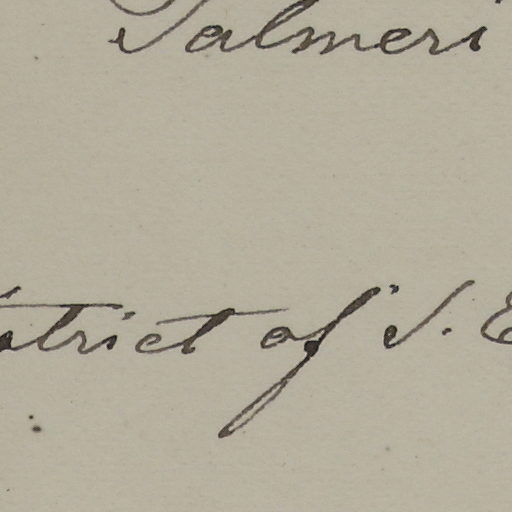 Palmeri
strict of S. E